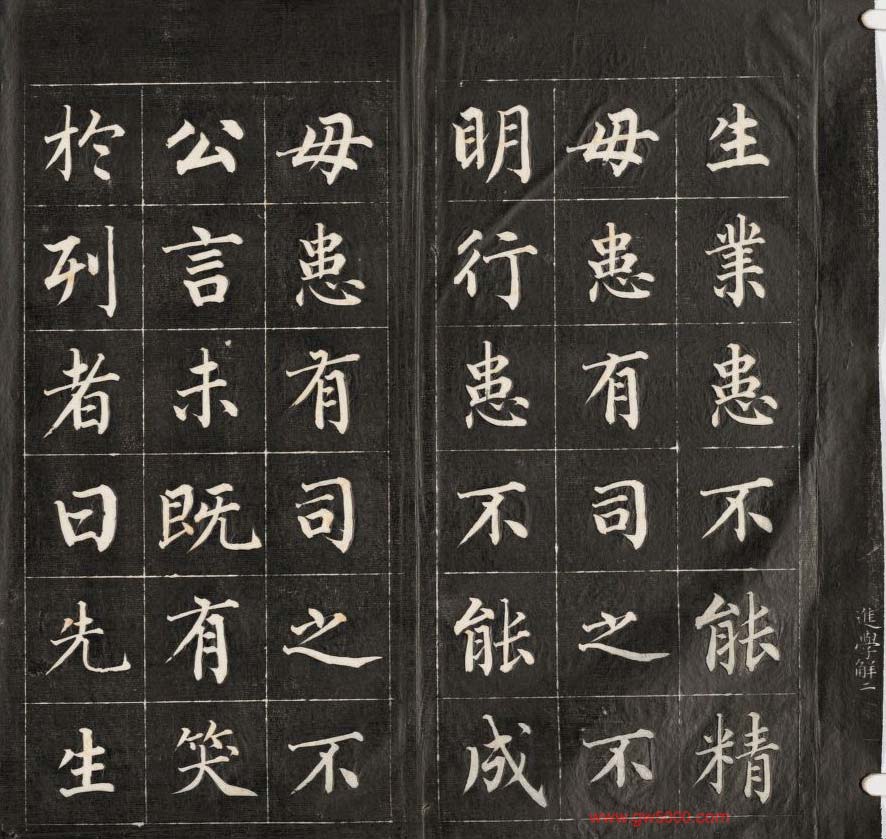 生業患不能精
毋患有司之不
明行患不能成
毋患有司之不
公言未既有笑
於列者曰先生
進學解二
www.gw5000.com